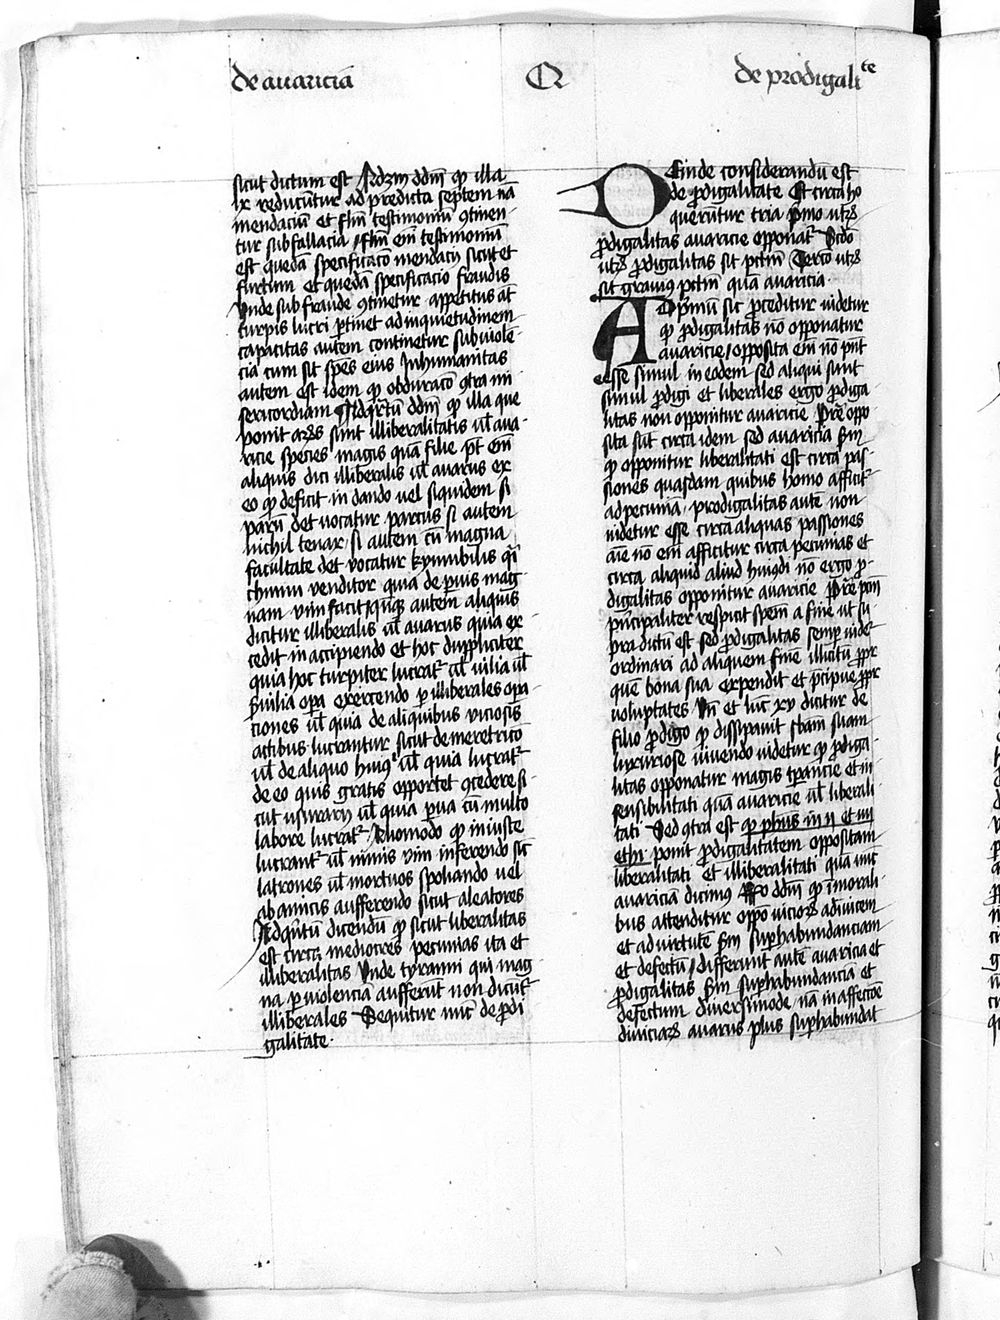 de auaricia Q de prodigalite
sicut dictum est Ad 3m ddm qp illa
ix reducūtur ad predicta septem nā
mendaciū et flm testimoniū ꝯtinen
tur sub fallacia flm em testimoniū
est quedā specificatō mendacij sicut et
furtum et quedā specificacio fraudis
Vnde sub fraude ꝯtinetur appetitus āt
turpis lucri ptinet ad inquietudinem
capacitas autem continetur sub uiolē
cia cum sit spēs eius Inhumanitas
autem est idem qp obduracō ꝯtra mi
sericordiam Ad qrtū ddm qp illa que
ponit ar9 sunt illiberalitatis ul aua
ricie species magis quā filie pt em
aliquis dici illiberalis ul auarus ex
eo qp deficit in dando uel siquidem si
parū det uocatur parcus si autem
nichil tenax si autem cū magna
facultate det vocatur kyminibilis q̄i
chimin venditor quia de puis mag
nam vim facit qnqꝫ autem aliquis
dicitur illiberalis ul auarus quia ex
cedit in accipiendo et hoc duppliciter
quia hoc turpiter lucrat᷑ ul uilia ul
suilia opa exercendo p illiberales opa
ciones ul quia de aliquibus viciosis
actibus lucrantur sicut de meretrico
ul de aliquo huiꝰ ul quia lucrat᷑
de eo quis gratis opportet ꝯcedere si
cut usurarij ul quia pua cū multo
labore lucrat᷑ Alio modo qp iniuste
lucrant᷑ ul nimis vim inferendo sic
latrones ul mortuos spoliando uel
ab amicis aufferendo sicut aleatores
Ad qntū dicendū qp sicut liberalitas
est circa mediocres pecunias ita et
illiberalitas Vnde tyranni qui mag
na p uiolenciā aufferūt non dicūt᷑
illiberales Sequitur nūc de pdi
galitate
Deinde considerandū est
de pdigalitate Et circa hͦ
querūtur tria pmo utꝝ
pdigalitas auaricie opponat᷑ Scdo
utꝝ pdigalitas sit pctm Tercō utꝝ
sit grauiꝰ pctm quā auaricia
Ad pmū sic pceditur uidetur
qp pdigalitas nō opponatur
auaricie opposita em nō pnt
eesse simul in eodem sed aliqui sunt
simul pdigi et liberales ergo pdiga
litas non opponitur auaricie Pre oppo
sita sūt circa idem sed auaricia sm
qp opponitur liberalitati est circa pas
siones quasdam quibus homo afficit᷑
ad pecunia prodigalitas autē non
uidetur esse circa aliquas passiones
aīe nō em afficitur circa pecunias et
circa aliquid aliud huiꝯdi nō ergo p
digalitas opponitur auaricie Pre pctm
principaliter respicit spem a fine ut su
pra dictū est sed pdigalitas semp uidet᷑
ordinari ad aliquem finē illicitū ppr
quē bona sua expendit et pcipue ppr
voluptates Vn et luc xv dicitur de
filio pdigo qp dissipauit sbam suam
luxuriose viuendo uidetur qp pdiga
litas opponatur magis tpancie et in
sensibilitati quā auaricie ul liberali
tati Sed ꝯtra est qp phus in ij et iiij
ethi ponit pdigalitatem oppositam
liberalitati et illiberalitati quā nūc
auariciā dicimꝰ Rō ddm qp ī morali
bus attenditur oppo uicioꝝ adinuicem
et ad uirtutē sm suphabundanciam
et defectū differunt autē auaricia et
pdigalitas sm suphabundanciā et
defectum diuersimode nā in affectōe
diuiciaꝝ auarus plus suphabundat